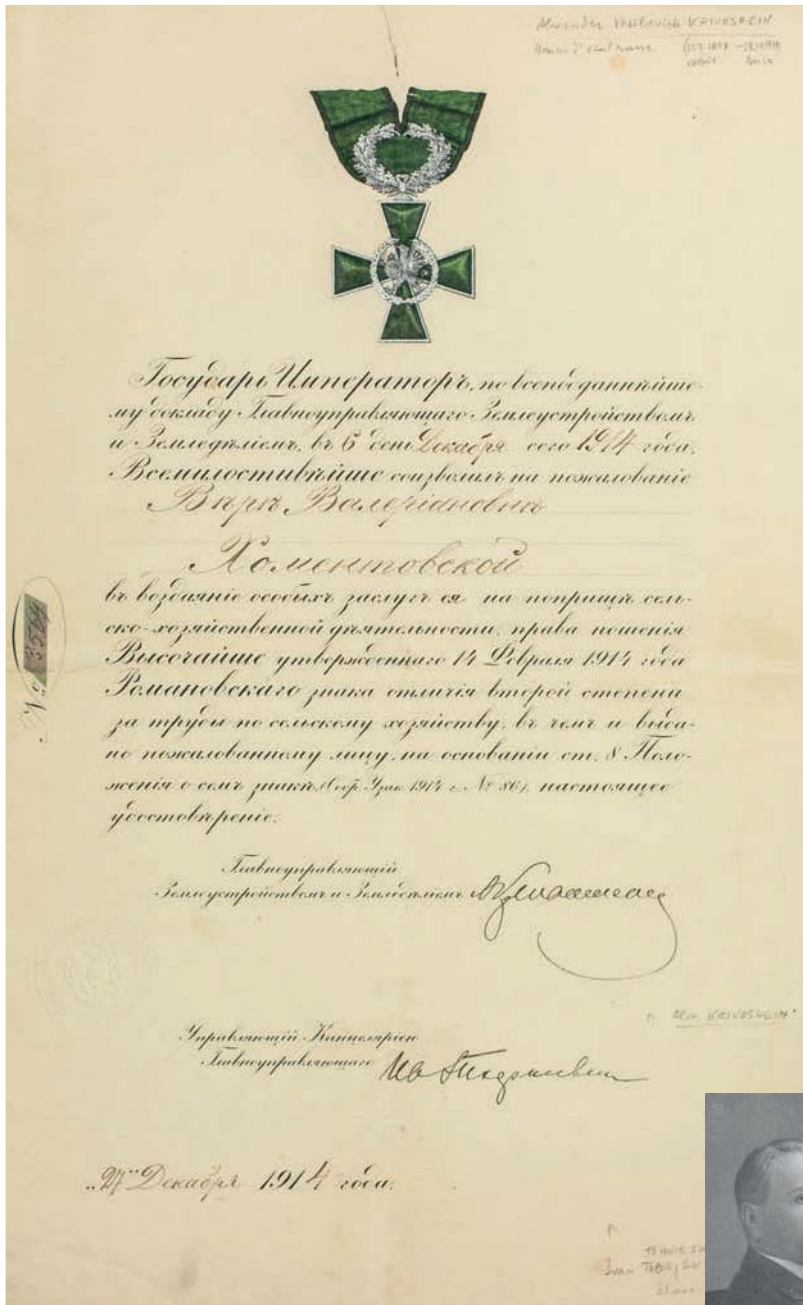 Alexander KRIVOSHEIN
Государь Императоръ, по всеподданнѣйше-
му докладу Главноуправляющаго Землеустройствомъ
и Земледѣліемъ, въ 6 день Декабря сего 1914 года,
Всемилостивѣйше соизволилъ на пожалованіе
Вѣрѣ Валеріановнѣ
Хоментовской
въ воздаяніе особыхъ заслугъ ея на поприщѣ сель-
ско-хозяйственной дѣятельности, права ношенія
Высочайше утвержденнаго 14 Февраля 1914 года
Романовскаго знака отличія второй степени
за труды по сельскому хозяйству, въ чемъ и выда-
но пожалованному лицу, на основаніи ст. 8 Поло-
женія о семъ знакѣ (Собр. Узак. 1914 г. № 86), настоящее
удостовѣреніе.
№ 3504
Главноуправляющій
Землеустройствомъ и Земледѣліемъ
Alex KRIVOSHEIN
Управляющій Канцеляріею
Главноуправляющаго
"27" Декабря 1914 года.
Ivan